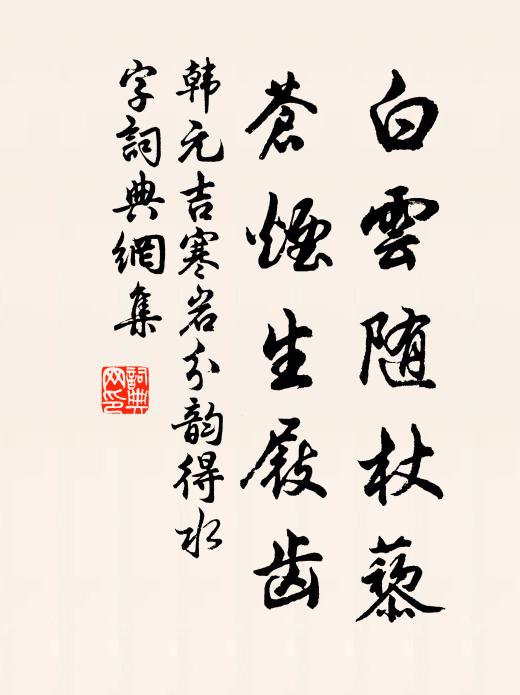 白雲随杖藜
蒼煙生屐齿
韩元吉寒岩分韵得水
字詞典網集
詞典網印